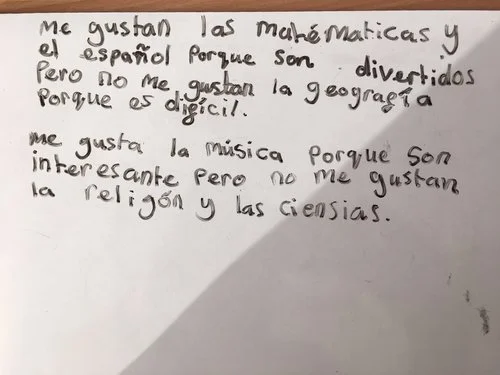 Me gustan las mathématicas y
el español porque son divertidos
Pero no me gustan la geografía
porque es difícil.
me gusta la música porque son
interesante pero no me gustan
la religón y las ciensias.